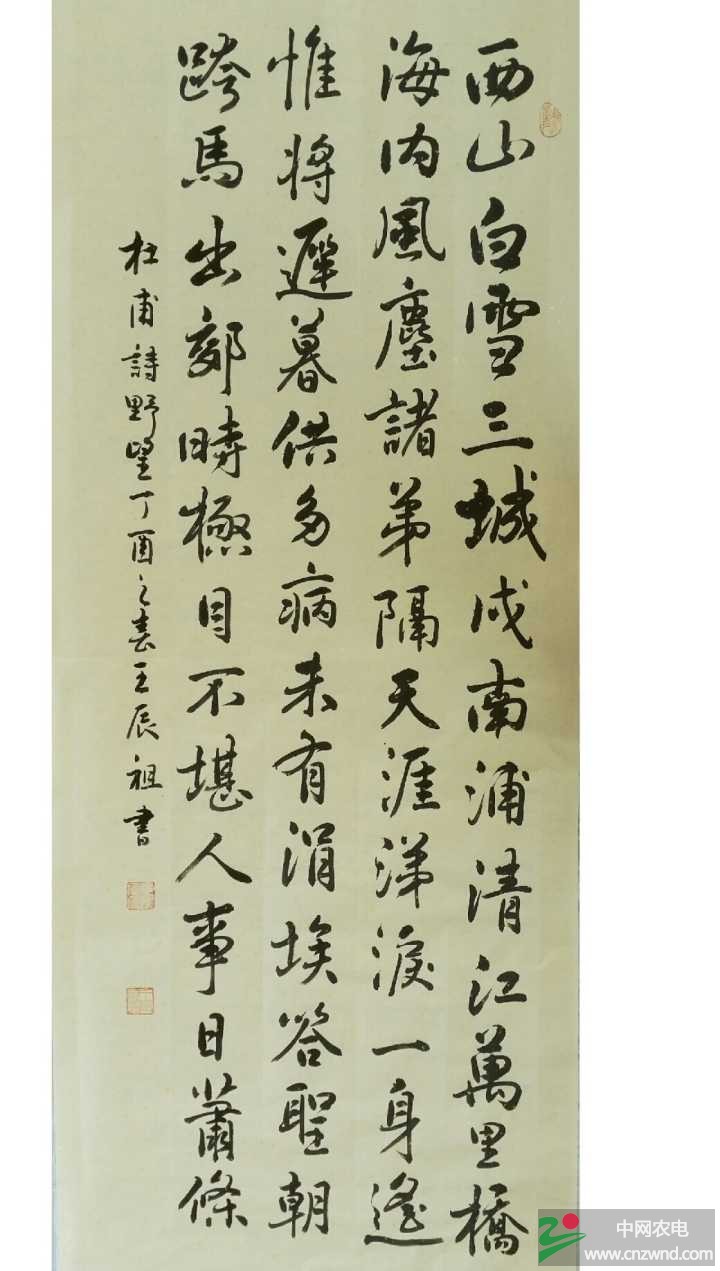 西山白雪三城戍南浦清江萬里橋
海內風塵諸弟隔天涯涕淚一身遙
惟將遲暮供多病未有涓埃答聖朝
跨馬出郊時極目不堪人事日蕭條
杜甫詩野望丁酉之春王辰祖書
中网农电
www.cnzwnd.com